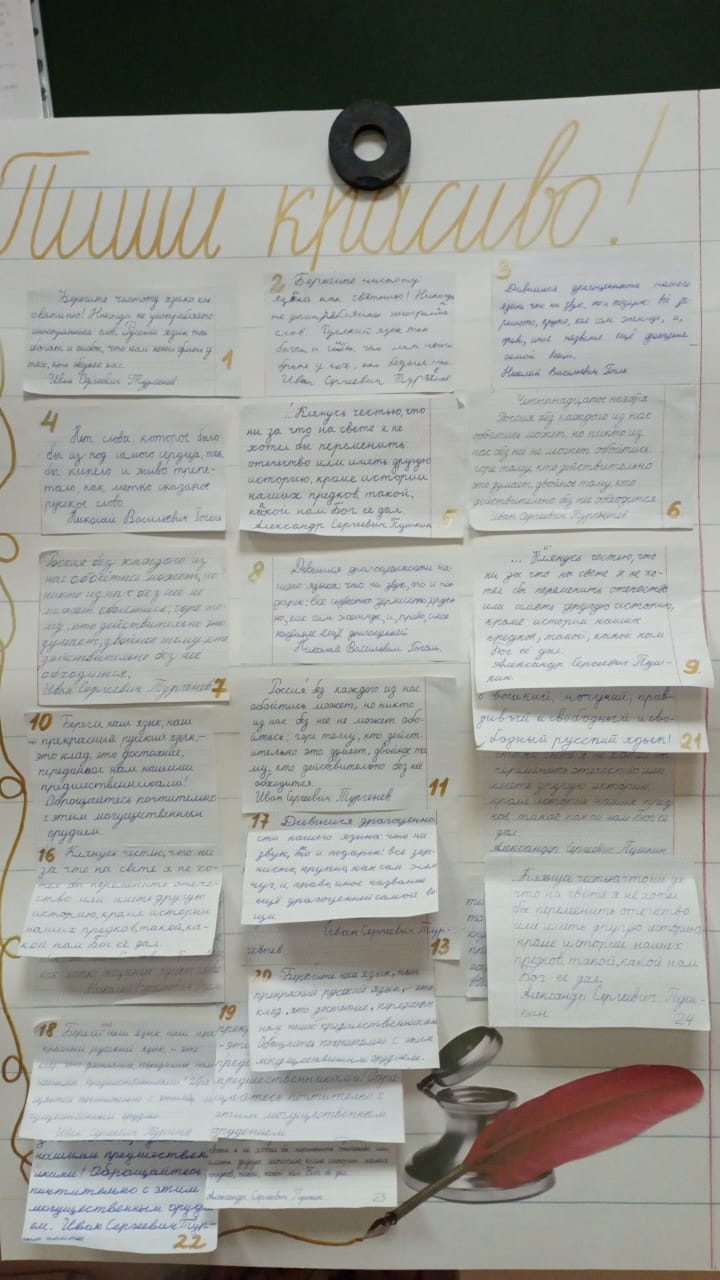 Пиши красиво!
Берегите чистоту языка как
святыню! Никогда не употребляйте
иностранных слов. Русский язык так
богат и гибок, что нам нечего брать у
тех, кто беднее нас.
Иван Сергеевич Тургенев
1
2
Берегите чистоту
языка как святыню! Никогда
не употребляйте иностранных
слов Русский язык так
богат и гибок, что нам нечего
брать у тех, кто беднее нас
Иван Сергеевич Тургенев
3
Дивишься драгоценности нашего
языка: что ни звук, то и подарок:
зернисто, крупно, как сам жемчуг, и,
право, иное название ещё драгоценнее
самой вещи.
Николай Васильевич Гоголь
4
Нет слова, которое было
бы из под самого сердца, так
бы кипело и живо трепе-
тало, как метко сказанное
русское слово.
Николай Васильевич Гоголь
...Клянусь честью, что
ни за что на свете я не
хотел бы переменить
отечество или иметь другую
историю, кроме истории
наших предков, такой,
какой нам Бог её дал.
Александр Сергеевич Пушкин
5
Четырнадцатое ноября
Россия без каждого из нас
обойтись может, но никто из
нас без неё не может обойтись.
горе тому, кто действительно
это думает, двойное тому, кто
действительно без неё обходится
Иван Сергеевич Тургенев
6
Россия без каждого из
нас обойтись может, но
никто из нас без неё не
может обойтись; горе то-
му, кто действительно это
думает, двойное тому, кто
действительно без неё
обходится.
Иван Сергеевич Тургенев
7
8
Дивишься драгоценности на-
шего языка: что ни звук, то и по-
дарок: все зернисто, крупно,
как сам жемчуг, и, право, иное
название ещё драгоценней
Николай Васильевич Гоголь.
... Клянусь честью, что
ни за что на свете я не хо-
тел бы переменить отечество
или иметь другую историю,
кроме истории наших
предков, такой, какой нам
Бог её дал.
Александр Сергеевич Пуш-
кин.
9
О великий, могучий, прав-
дивый и свободный и сво-
бодный русский язык!
21
переменить отечество или
иметь другую историю,
кроме истории наших пред
ков, такой, какой нам Бог её
дал
Александр Сергеевич Пушкин
10
Береги наш язык, наш
прекрасный русский язык,-
это клад, это достояние,
переданное нам нашими
предшественниками!
Обращайтесь почтительно
с этим могущественным
орудием.
Россия без каждого из нас
обойтись может, но никто
из нас без неё не может обо-
йтись; горе тому, кто дейст-
вительно это думает, двойное то-
му, кто действительно без неё
обходится.
Иван Сергеевич Тургенев
11
16
Клянусь честью, что ни
за что на свете я не хо-
тел бы переменить отече-
ство или иметь другую
историю, кроме истории
наших предков, такой, ка-
кой нам Бог её дал.
17
Дивишься драгоценно-
сти нашего языка: что ни
звук, то и подарок: все зер-
нисто, крупно, как сам жем-
чуг, и, право, иное название
ещё драгоценней самой ве-
щи
Иван Сергеевич Тур-
генев
13
Клянусь честью, что ни за
что на свете я не хотел
бы переменить отечество
или иметь другую историю
кроме истории наших
предков, такой, какой нам
Бог её дал.
Александр Сергеевич Пуш-
кин
24
18
Береги наш язык наш прек
расный русский язык, - это
Иван Сергеевич Тургенев
19
-это
предшественниками. Обра-
щайтесь почтительно с
этим могущественным
орудием
20
Берегите наш язык, наш
прекрасный русский язык, - это
клад, это достояние, переданное
нам нашими предшественниками
Обращайтесь почтительно с этим
могущественным орудием.
нашими предшествен
никами! Обращайтесь
почтительно с этим
могущественным оруди-
ем. Иван Сергеевич Тур-
22
иметь другую историю, кроме истории наших
предков, такой, какой нам Бог её дал
Александр Сергеевич Пушкин
23